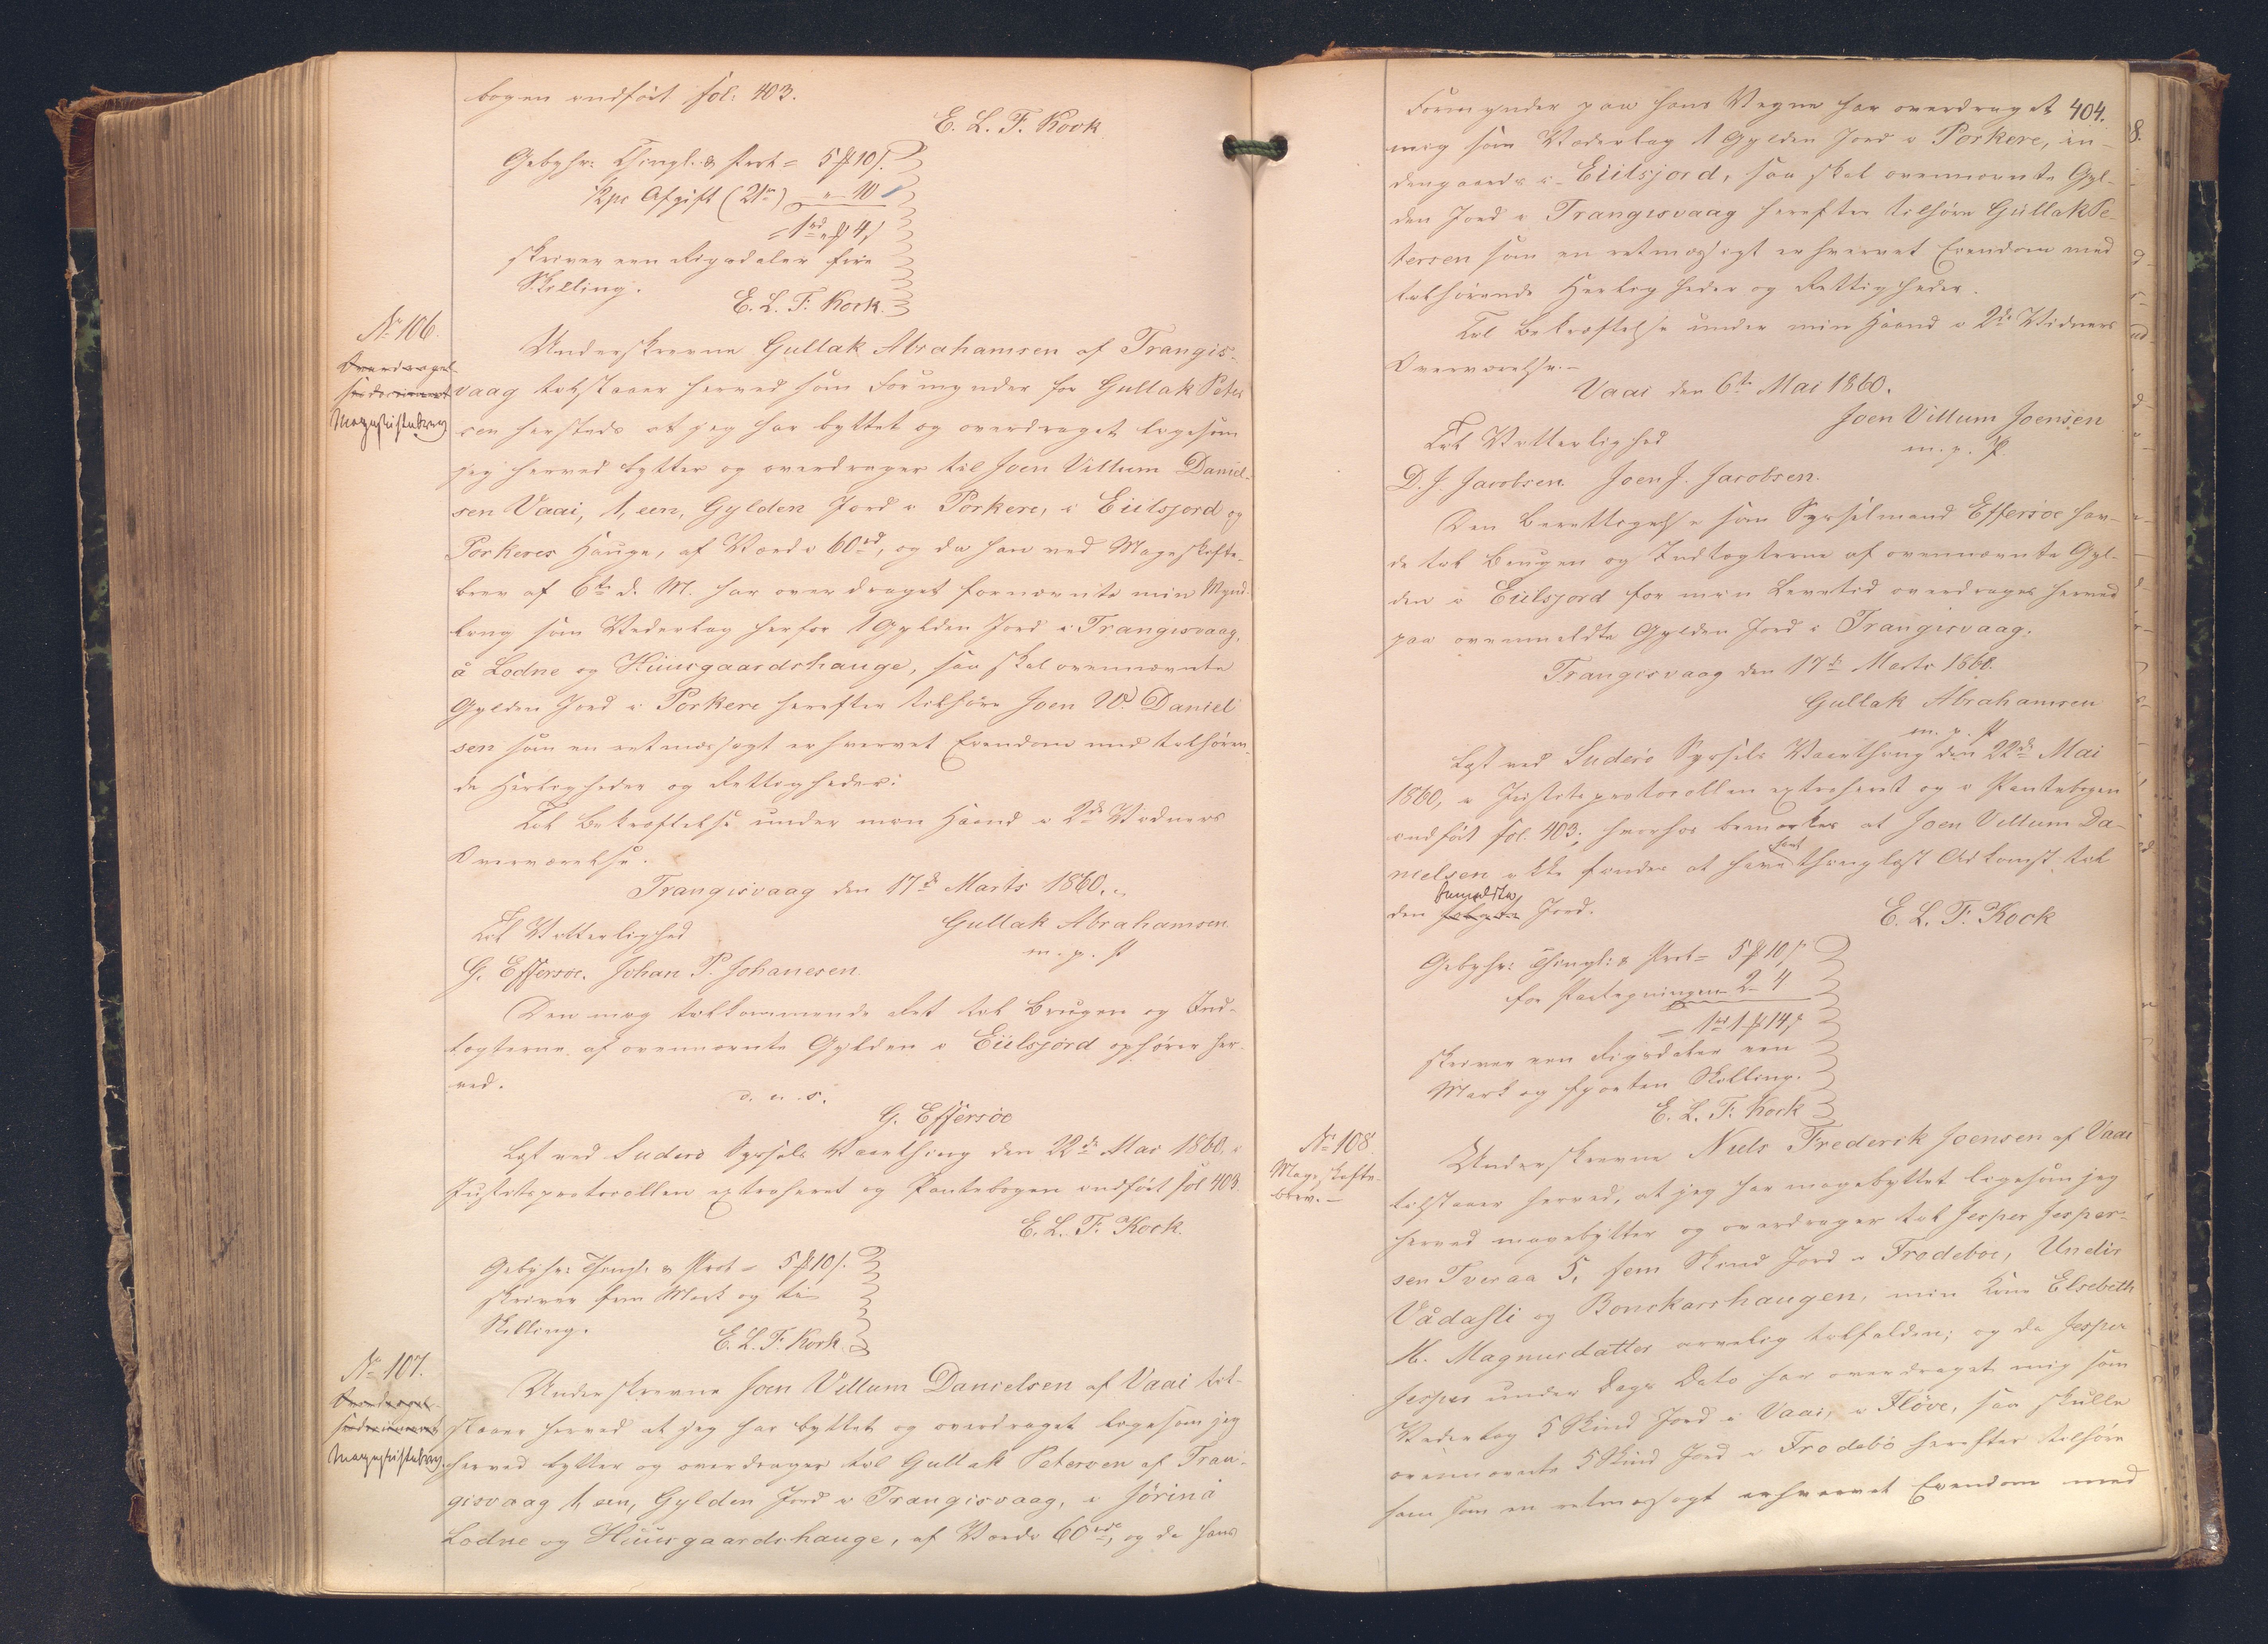 bogen indført fol: 403.
E. L. F. Kock
Gebyhr: Thingl. & Prot = 5 ₰ 10 s.
½ pc Afgift (21) " - 10
= 1 rd " ₰ 4 s
skriver een Rigsdaler fire
Skilling.
E. L. F. Kock.
No 106.
Overdragel-
sesdocument
Mageskiftebrev
Underskrevne Gullak Abrahamsen af Trangis-
vaag tilstaaer herved som Formynder for Gullak Peter
sen hersteds at jeg har byttet og overdraget ligesom
jeg herved bytter og overdrager til Joen Villum Daniel-
sen Vaai, 1, een, Gylden Jord i Porkere, i Eiilsjord og
Porkeres Hauge, af Værdi 60 rd, og da han ved Mageskifte-
brev af 6te d. M. har overdraget fornævnte min Mynd-
ling som Vederlag herfor 1 Gylden Jord i Trangisvaag,
å Lodne og Huusgaardshauge, saa skal ovennævnte
Gylden Jord i Porkere herefter tilhøre Joen W. Daniel
sen som en retmæssigt erhvervet Eiendom med tilhøren-
de Herligheder og Rettigheder.
Til Bekræftelse under min Haand i 2de Vidners
Overværelse.
Trangisvaag den 17de Marts 1860.
Til Vitterlighed
Gullak Abrahamsen
m. p. P
G. Effersøe. Johan P. Johanesen
Den mig tilkommende Ret til Brugen og Ind-
tægterne af ovennævnte Gylden i Eiilsjord ophører her-
ved.
d. u. s.
G. Effersøe
Læst ved Suderø Syssels Vaarthing den 22de Mai 1860, i
Justitsprotocollen extraheret og Pantebogen indført fol 403.
E. L. F. Kock.
Gebyhr: Thingl. & Prot = 5 ₰ 10 s.
skriver fem Mark og ti
Skilling.
E. L. F. Kock
No 107.
Overdragel-
sesdocument
Mageskiftebrev.
Underskrevne Joen Villum Danielsen af Vaai til-
staaer herved at jeg har byttet og overdraget ligesom jeg
herved bytter og overdrager til Gullak Petersen af Tran-
gisvaag 1, een, Gylden Jord i Trangisvaag, i Jörinå
Lodne og Huusgaardshauge, af Værdi 60 rd, og da hans
404.
Formynder paa hans Vegne har overdraget
mig som Vederlag 1 Gylden Jord i Porkere, in-
dengaards i Eiilsjord, saa skal ovennævnte Gyl-
den Jord i Trangisvaag herefter tilhøre Gullak Pe-
tersen som en retmæssigt erhvervet Eiendom med
tilhørende Herligheder og Rettigheder.
Til Bekræftelse under min Haand i 2de Vidners
Overværelse.-
Vaai den 6te Mai 1860.
Joen Villum Joensen
m. p. P.
Til Vitterlighed
D. J. Jacobsen. Joen J. Jacobsen.
Den Berettigelse som Sysselmand Effersøe hav-
de til Brugen og Indtægterne af ovennævnte Gyl-
den i Eiilsjord for min Levetid overdrages herved
paa ovenmeldte Gylden Jord i Trangisvaag.
Trangisvaag den 17de Marts 1860.
Gullak Abrahamsen
m. p. P
Læst ved Suderø Syssels Vaarthing den 22de Mai
1860, i Justitsprotocollen extraheret og i Pantebogen
indført fol. 403; hvorhos bemærkes at Joen Villum Da-
nielsen ikke findes at have havt thinglæst Adkomst til
den anmeldte Jord.
E. L. F. Kock
Gebyhr: Thingl: & Prot = 5 ₰ 10 s
for Paategningen 2 - 4
= 1 rd 1 ₰ 14 s
skriver een Rigsdaler een
Mark og fjorten Skilling.
E. L. F. Kock
No 108
Mageskifte-
brev. -
Underskrevne Niels Frederik Joensen af Vaai
tilstaaer herved, at jeg har magebyttet ligesom jeg
herved magebytter og overdrager til Jesper Jesper-
sen Tveraa 5, fem Skind Jord i Frodeboe, Undir
Vådasli og Bonckarshaugen, min Kone Elsebeth
M. Magnusdatter arvelig tilfalden; og da Jesper
Jesper under Dags Dato har overdraget mig som
Vederlag 5 Skind Jord i Vaai, i Flöve, saa skulle
ovennævnte 5 Skind Jord i Frodebö herefter tilhøre
ham som en retmæssigt erhvervet Eiendom med